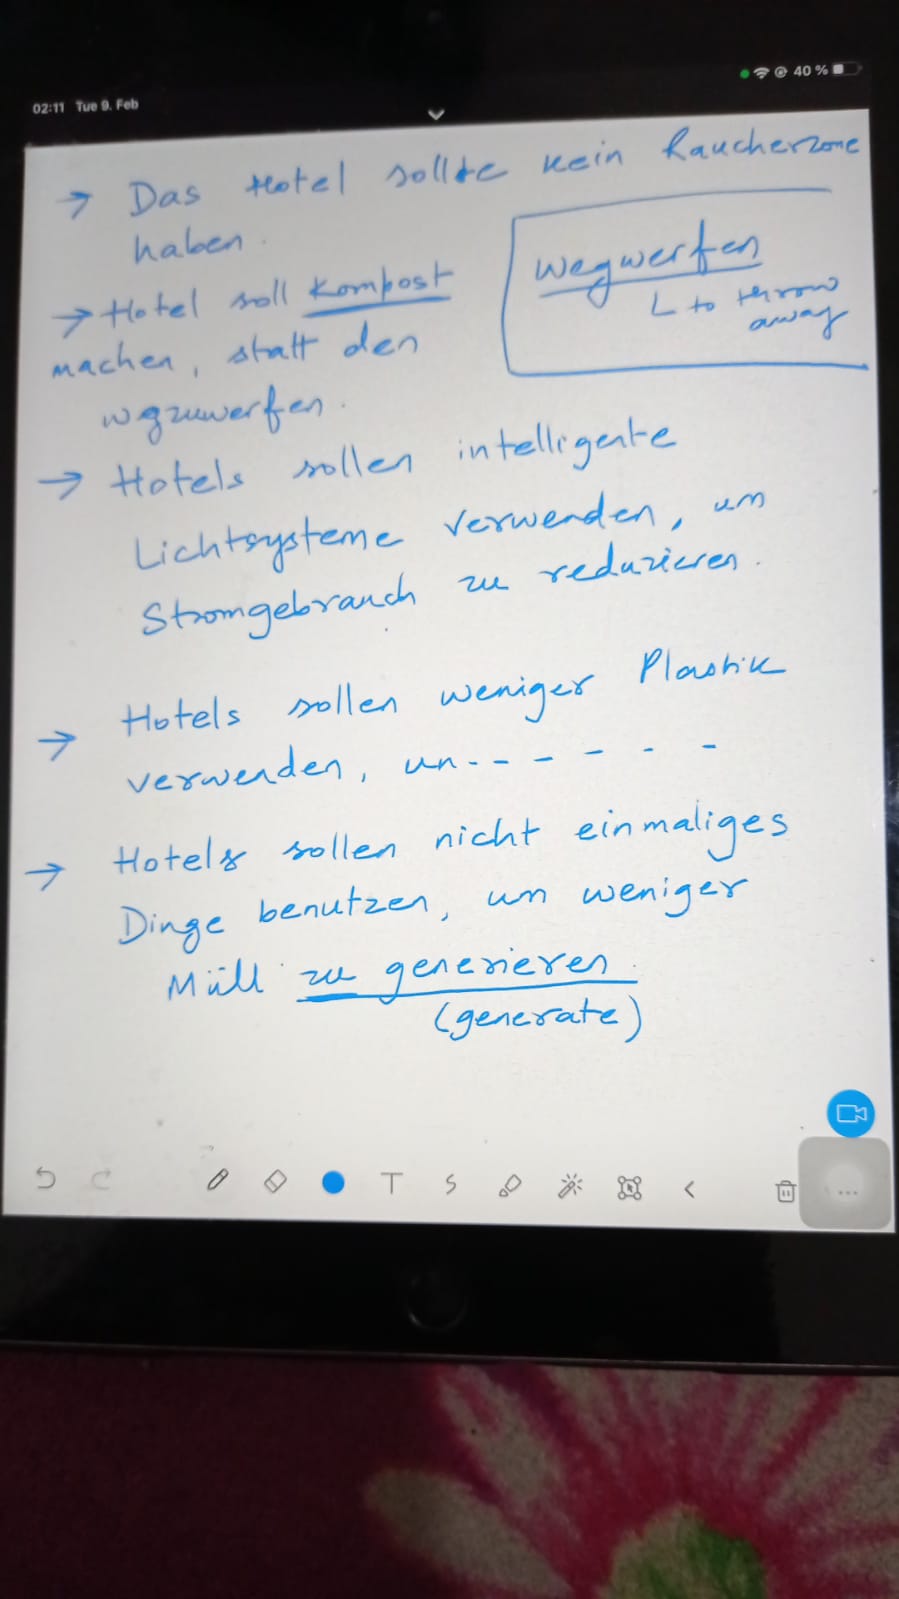 02:11 Tue 9. Feb
40 %
→ Das Hotel sollte kein Raucherzone
haben.
wegwerfen
to throw
away
→ Hotel soll Kompost
machen, statt den
wgzuwerfen.
→ Hotels sollen intelligente
Lichtsysteme verwenden, um
Stromgebrauch zu reduzieren.
→ Hotels sollen weniger Plastik
verwenden, un - - - - - -
→ Hotels sollen nicht einmaliges
Dinge benutzen, um weniger
Müll zu generieren.
(generate)
T